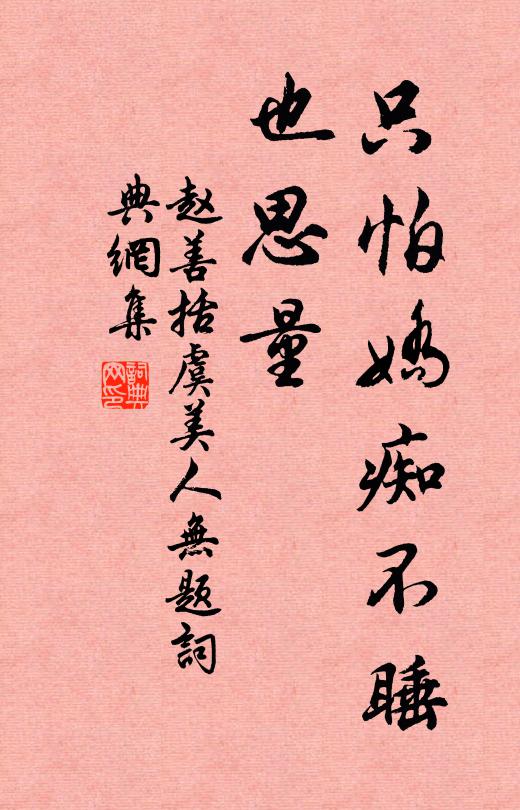 只怕嬌痴不睡
也思量
赵善括虞美人無题詞
典網集
詞典
网印